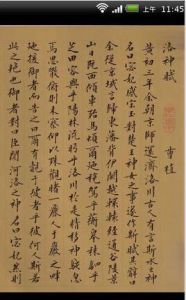 11:45
洛神賦
曹植
黃初三年余朝京師還濟洛川古人有言斯水之神
名曰宓妃感宋玉對楚王神女之事遂作斯賦其辭曰
余從京域言歸東藩背伊闕越轘轅經通谷陵景
山日既西傾車殆馬煩爾迺稅駕乎蘅皋秣駟乎
芝田容與乎陽林流眄乎洛川於是精移神駭忽
焉思散俯則未察仰以殊觀睹一麗人于巖之畔
迺援御者而告之曰爾有覿於彼者乎彼何人斯若
此之艷也御者對曰臣聞河洛之神名曰宓妃然則